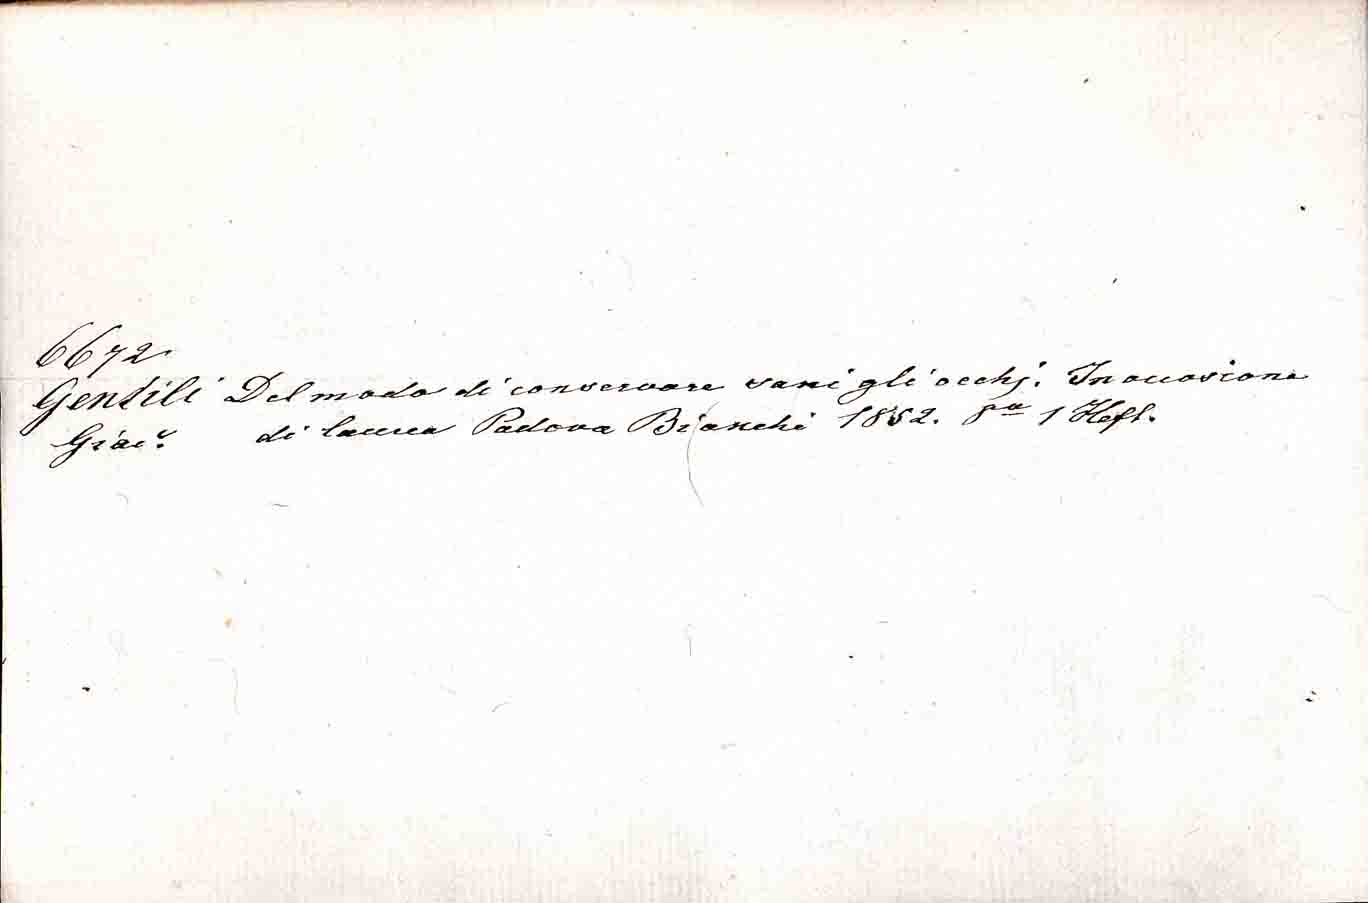 6672.
Gentili Del modo di conservare sani gli occhj. In occasione
Giac.º di laurea Padova Bianchi 1852. 8º 1 Heft.